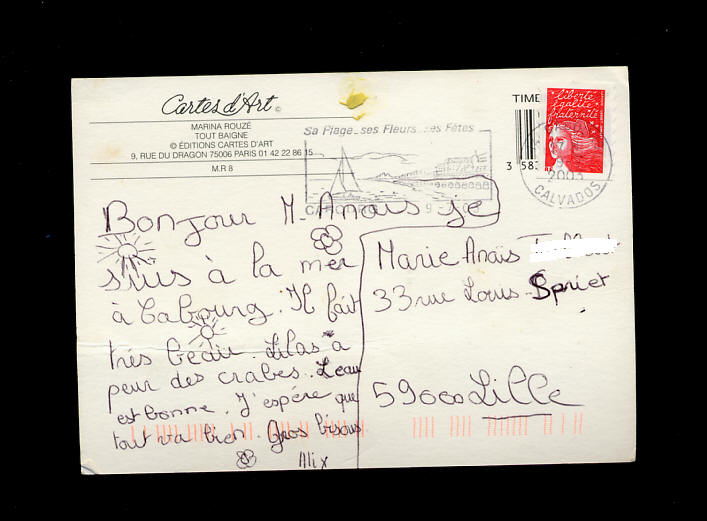 Cartes d'Art ©
MARINA ROUZÉ
TOUT BAIGNE
© ÉDITIONS CARTES D'ART
9, RUE DU DRAGON 75006 PARIS 01 42 22 86 15
M.R 8
Sa Plage..ses Fleurs..ses Fêtes
TIME
3 583
liberté
égalité
fraternité
2003
CALVADOS
Bonjour M. Anaïs je
suis à la mer
à Cabourg. Il fait
très beau. Lilas a
peur des crabes. L'eau
est bonne. J'espère que
tout va bien. Gros bisous
Alix
Marie Anaïs
33 rue Louis Spriet
59000 Lille